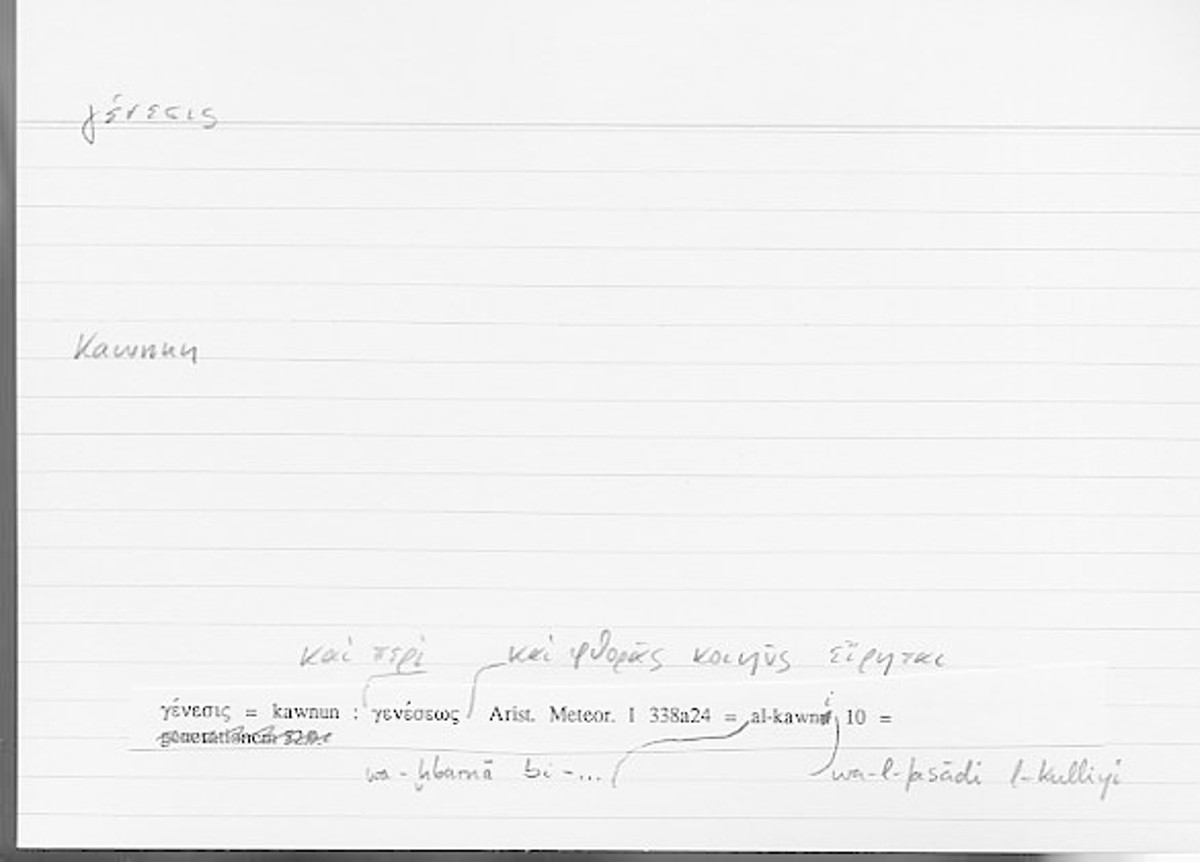 γένεσις
Kawnun
καὶ περὶ καὶ φθορᾶς κοινῆς εἴρηται
γένεσις = kawnun : γενέσεως Arist. Meteor. I 338a24 = al-kawni 10 =
generationem 520.
wa-ḫbarnā bi-... wa-l-fasādi l-kulliyi